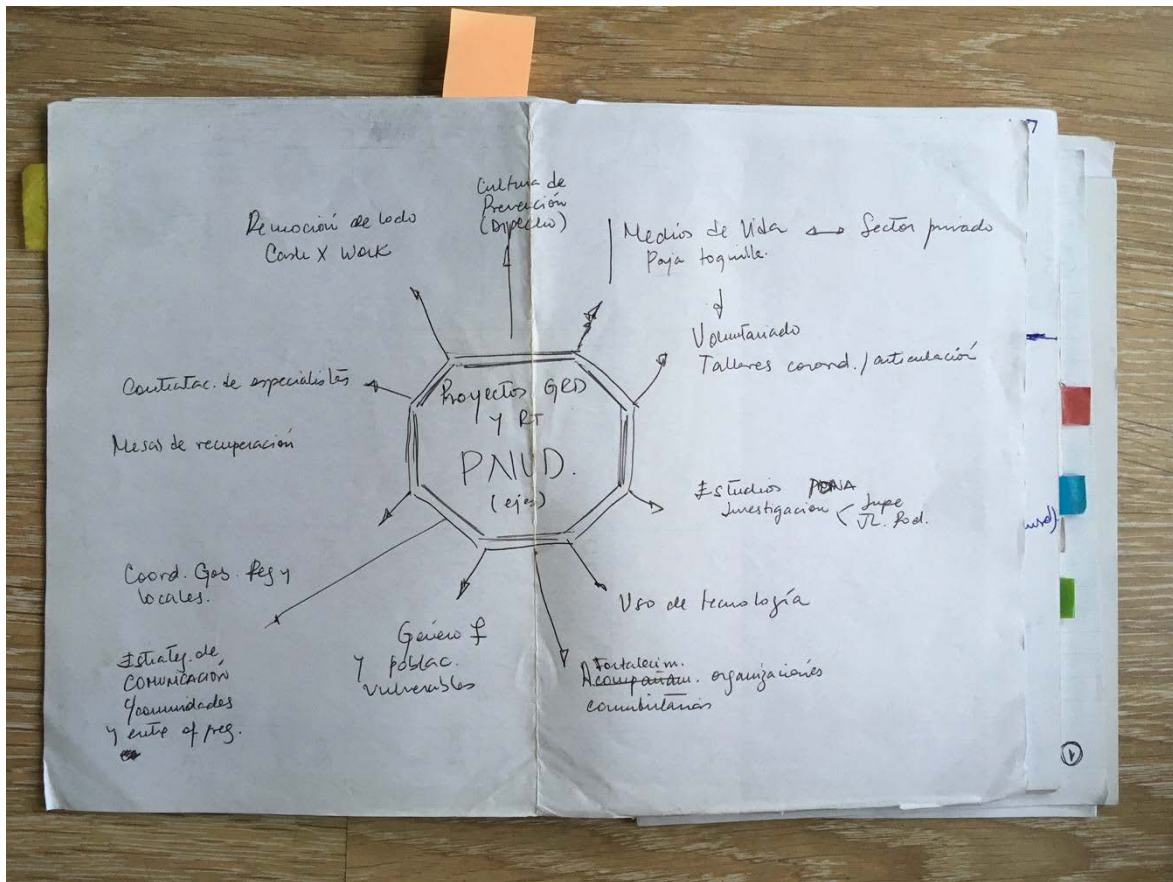 Cultura de
Prevención
Remoción de lodo
Cash X Work
Medios de Vida ↔ Sector privado
Paja toquilla.
Voluntariado
Talleres coord./articulación
Contratac. de especialistas
Proyectos GRD
y RT
PNUD.
(ejes)
Mesas de recuperación
Estudios PDNA
Investigación
Coord. Gob. Reg y
locales.
Uso de tecnología
Género
y poblac.
vulnerables
Fortalecim.
Acompañam. organizaciones
comunitarias
Estrateg. de
COMUNICACIÓN
c/comunidades
y entre of preg.
1